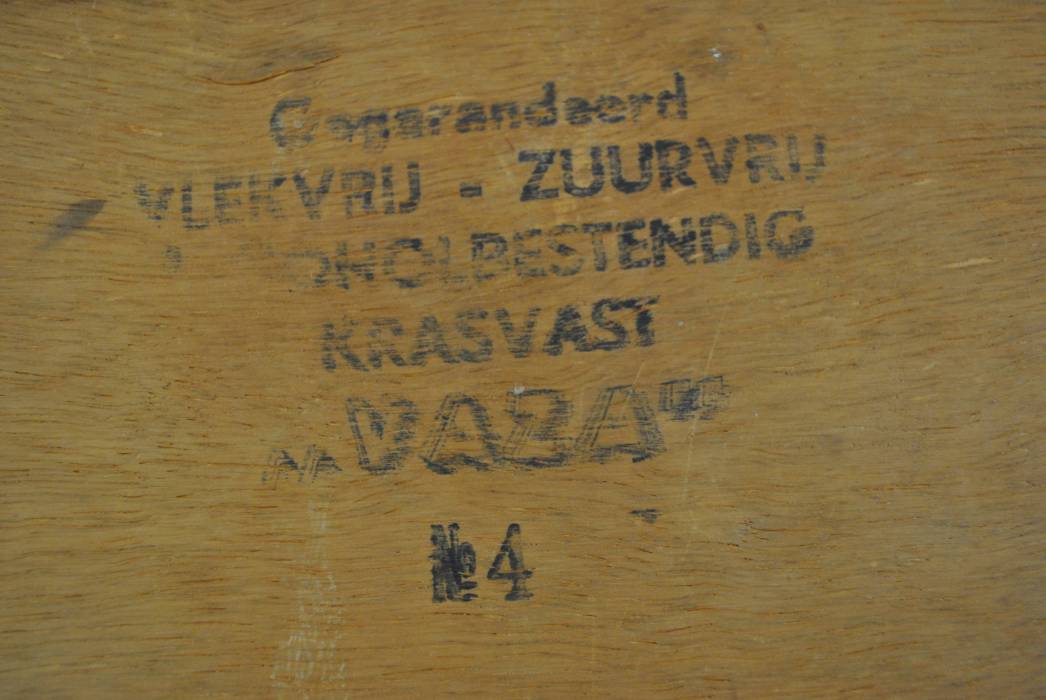 Gegarandeerd
VLEKVRIJ - ZUURVRIJ
OHOLBESTENDIG
KRASVAST
„VAZA”
№ 4